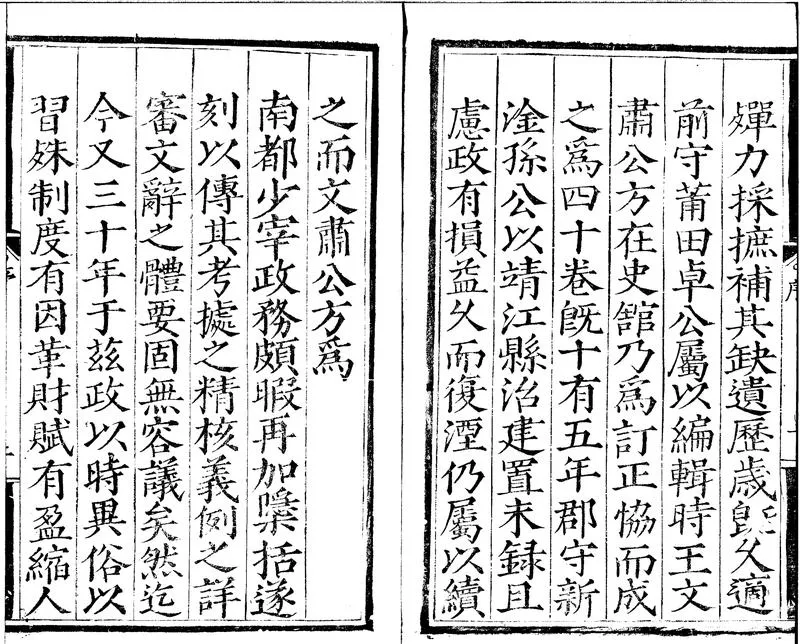 殫力採摭補其缺遺歷歲既久適
前守莆田卓公屬以編輯時王文
肅公方在史館乃為訂正協而成
之為四十卷既十有五年郡守新
淦孫公以靖江縣治建置未録且
慮政有損益久而復湮仍屬以續
之而文肅公方為
南都少宰政務頗暇再加櫽括遂
刻以傳其考據之精核義例之詳
審文辭之體要固無容議矣然迄
今又三十年于茲政以時異俗以
習殊制度有因革財賦有盈縮人
序